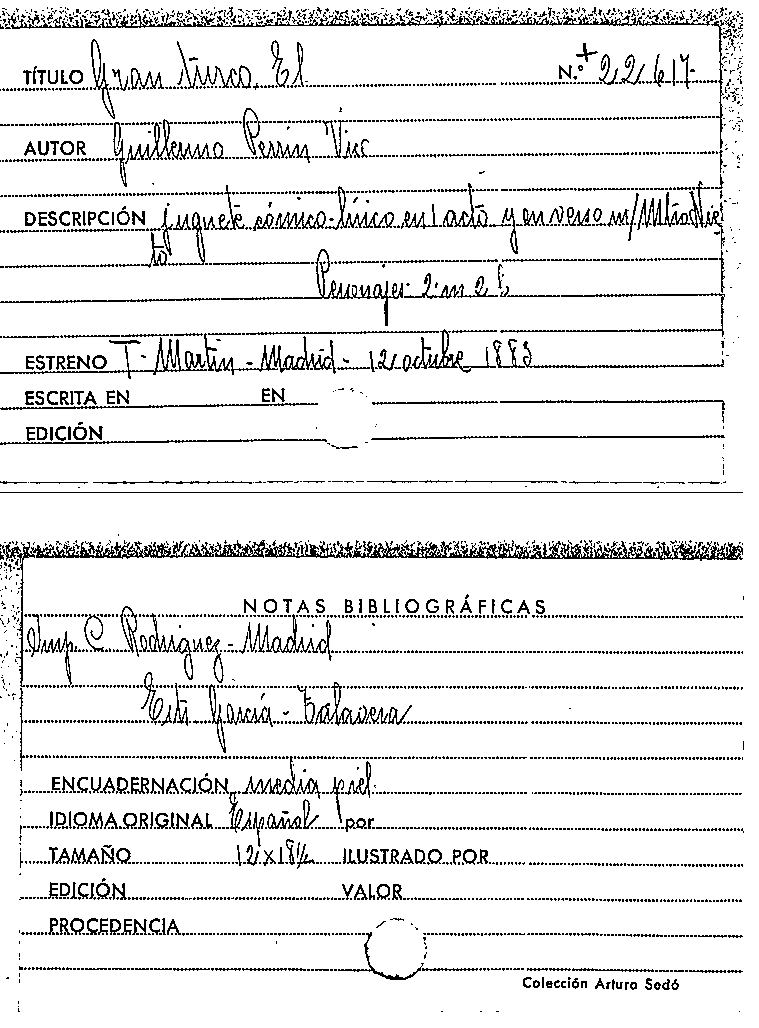 TÍTULO Gran turco, El N.º + 22617-
AUTOR Guillermo Perrin Vic
DESCRIPCIÓN juguete cómico-lírico en 1 acto y en verso m/ Mtro Nie
to
Personajes 2 m 2 h
ESTRENO T- Martin - Madrid - 12 octubre 1883
ESCRITA EN EN
EDICIÓN
NOTAS BIBLIOGRÁFICAS
Imp. C. Rodriguez - Madrid
García - Talavera
ENCUADERNACIÓN media piel.
IDIOMA ORIGINAL Español por
TAMAÑO 12 x 18½ ILUSTRADO POR
EDICIÓN VALOR
PROCEDENCIA
Colección Arturo Sedó